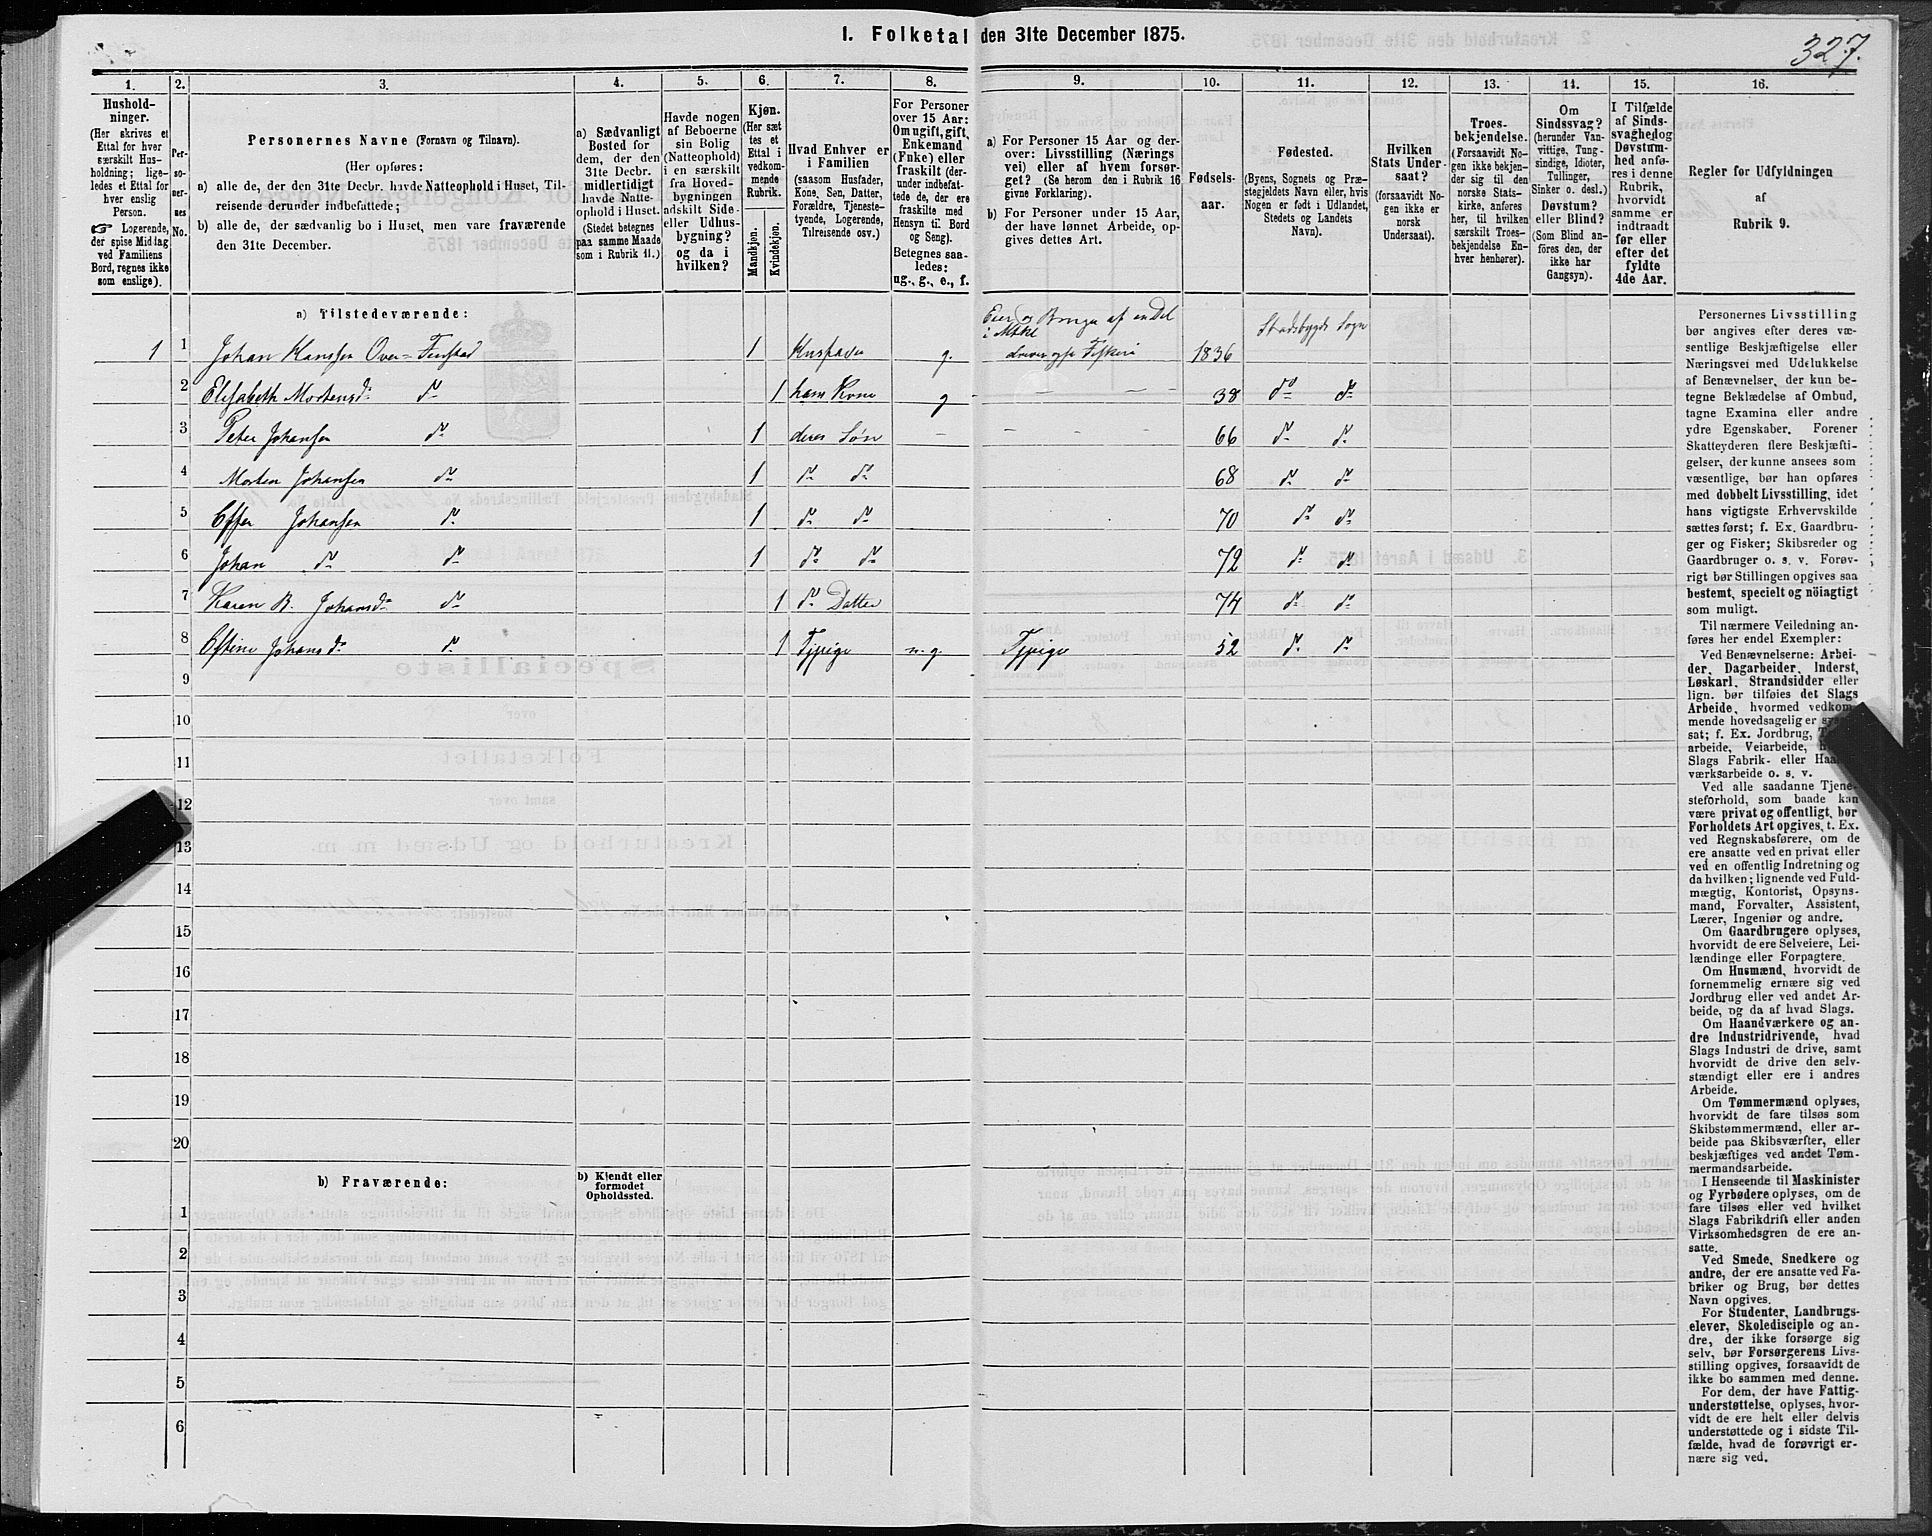 1. Folketal den 31te December 1875.
327.
1.
2.
3.
4.
5.
6.
7.
8.
9.
10.
11.
12.
13.
14.
15.
16.
Hushold-
ninger.
(Her skrives et
Ettal for hver
særskilt Hus-
holdning; lige-
ledes et Ettal for
hver enslig
Person.
☞ Logerende,
der spise Middag
ved Familiens
Bord, regnes ikke
som enslige).
Per-
so-
ner-
nes
No.
Personernes Navne (Fornavn og Tilnavn).
(Her opføres:
a) alle de, der den 31te Decbr. havde Natteophold i Huset, Til-
reisende derunder indbefattede;
b) alle de, der sædvanlig bo i Huset, men vare fraværende
den 31te December.
a) Sædvanligt
Bosted for
dem, der den
31te Decbr.
midlertidigt
havde Natte-
ophold i Huset.
(Stedet betegnes
paa samme Maade
som i Rubrik 11.)
Havde nogen
af Beboerne
sin Bolig
(Natteophold)
i en særskilt
fra Hoved-
bygningen
adskilt Side-
eller Udhus-
bygning?
og da i
hvilken?
Kjøn.
(Her sæt
tes et
Ettal i
vedkom-
mende
Rubrik.
Mandkjøn.
Kvindekjøn.
Hvad Enhver er
i Familien
(saasom Husfader,
Kone, Søn, Datter,
Forældre, Tjeneste-
tyende, Logerende,
Tilreisende osv.)
For Personer
over 15 Aar:
Om ugift, gift,
Enkemand
(Enke) eller
fraskilt (der-
under indbefat-
tede de, der ere
fraskilte med
Hensyn til Bord
og Seng).
Betegnes saa-
ledes:
ug., g., e., f.
a) For Personer 15 Aar og der-
over: Livsstilling (Nærings
vei) eller af hvem forsør-
get? (Se herom den i Rubrik 16
givne Forklaring).
b) For Personer under 15 Aar,
der have lønnet Arbeide, op-
gives dettes Art.
Fødsels-
aar.
Fødested.
(Byens, Sognets og Præ-
stegjeldets Navn eller, hvis
Nogen er født i Udlandet,
Stedets og Landets
Navn).
Hvilken
Stats Under-
saat?
(forsaavidt No-
gen ikke er
norsk
Undersaat).
Troes-
bekjendelse.
(Forsaavidt No-
gen ikke bekjen-
der sig til den
norske Stats-
kirke, anføres
her, til hvilken
særskilt Troes-
bekjendelse En-
hver henhører).
Om
Sindssvag?
(herunder Van-
vittige, Tung-
sindige, Idioter,
Tullinger,
Sinker o. desl.)
Døvstum?
eller Blind?
(Som Blind an-
føres den, der
ikke har
Gangsyn).
I Tilfælde
af Sinds-
svaghed og
Døvstum-
hed anfø-
res i denne
Rubrik,
hvorvidt
samme er
indtraadt
før eller
efter det
fyldte
4de Aar.
Regler for Udfyldningen
af
Rubrik 9.
a) Tilstedeværende:
Eier og Bruger af en Del
i Mtkl
Stadsbygds Sogn
1 1 Johan Hanssen Over-Fenstad 1 Husfader g. driver ogs. Fiskeri 1836
2 Elisabeth Mortensd. do 1 hans Kone g - - - 38 do do
3 Peter Johansen do 1 deres Søn - - - - 66 do do
4 Morten Johansen do 1 do do 68 do do
5 Johansen do 1 do do 70 do do
6 Johan do do 1 do do 72 do do
7 Karen B. Johansd. do 1 do Datter 74 do do
8 Johansd. do 1 Tjpige u. g. Tjpige 52 do do
9
10
11
12
13
14
15
16
17
18
19
20
b) Fraværende:
b) Kjendt eller
formodet
Opholdssted.
1
2
3
4
5
6
Personernes Livsstilling
bør angives efter deres væ-
sentlige Beskjæftigelse eller
Næringsvei med Udelukkelse
af Benævnelser, der kun be-
tegne Beklædelse af Ombud,
tagne Examina eller andre
ydre Egenskaber. Forener
Skatteyderen flere Beskjæfti-
gelser, der kunne ansees som
væsentlige, bør han opføres
med dobbelt Livsstilling, idet
hans vigtigste Erhvervskilde
sættes først; f. Ex. Gaardbru-
ger og Fisker; Skibsreder og
Gaardbruger o. s. v. Forøv-
rigt bør Stillingen opgives saa
bestemt, specielt og nöiagtigt
som muligt.
Til nærmere Veiledning an-
føres her endel Exempler:
Ved Benævnelserne: Arbei-
der, Dagarbeider, Inderst,
Løskarl, Strandsidder eller
lign. bør tilføies det Slags
Arbeide, hvormed vedkom-
mende hovedsagelig er syssel-
sat; f. Ex. Jordbrug,
arbeide, Veiarbeide,
Slags Fabrik- eller Haand-
værksarbeide o. s. v.
Ved alle saadanne Tjene-
steforhold, som baade kan
være privat og offentligt, bør
Forholdets Art opgives, t. Ex.
ved Regnskabsførere, om de
ere ansatte ved en privat eller
ved en offentlig Indretning og
da hvilken; lignende ved Fuld-
mægtig, Kontorist, Opsyns-
mand, Forvalter, Assistent,
Lærer, Ingeniør og andre.
Om Gaardbrugere oplyses,
hvorvidt de ere Selveiere, Lei-
lændinge eller Forpagtere.
Om Husmænd, hvorvidt de
fornemmelig ernære sig ved
Jordbrug eller ved andet Ar-
beide, og da af hvad Slags.
Om Haandværkere og an-
dre Industridrivende, hvad
Slags Industri de drive, samt
hvorvidt de drive den selv-
stændigt eller ere i andres
Arbeide.
Om Tømmermænd oplyses,
hvorvidt de fare tilsøs som
Skibstømmermænd, eller ar-
beide paa Skibsværfter, eller
beskjæftiges ved andet Tøm-
mermandsarbeide.
I Henseende til Maskinister
og Fyrbødere oplyses, om de
fare tilsøs eller ved hvilket
Slags Fabrikdrift eller anden
Virksomhedsgren de ere an-
satte.
Ved Smede, Snedkere og
andre, der ere ansatte ved Fa-
briker og Brug, bør dettes
Navn opgives.
For Studenter, Landbrugs-
elever, Skoledisciple og an-
dre, der ikke forsørge sig
selv, bør Forsørgerens Livs-
stilling opgives, forsaavidt de
ikke bo sammen med denne.
For dem, der have Fattig-
understøttelse, oplyses, hvor-
vidt de ere helt eller delvis
understøttede og i sidste Til-
fælde, hvad de forøvrigt er-
nære sig ved.